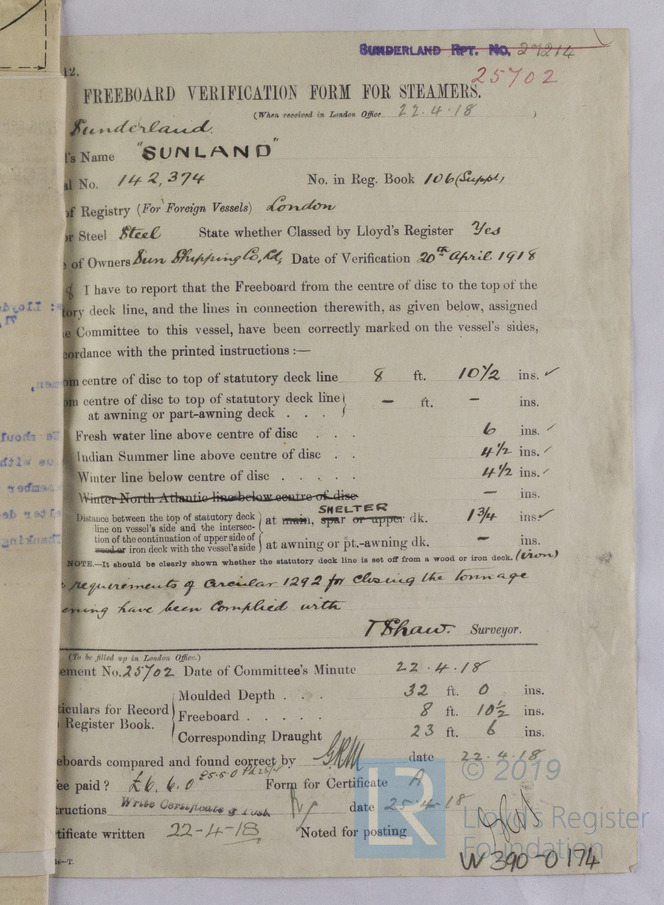 SUNDERLAND RPT. No. 27214
25702
12.
FREEBOARD VERIFICATION FORM FOR STEAMERS.
(When received in London Office 22.4.18 )
Sunderland
l's Name "SUNLAND"
al No. 142,374 No. in Reg. Book 106 (Suppt)
of Registry (For Foreign Vessels) London
or Steel Steel State whether Classed by Lloyd's Register Yes
e of Owners Sun Shipping Co, Ld, Date of Verification 20th April 1918
I have to report that the Freeboard from the centre of disc to the top of the
tory deck line, and the lines in connection therewith, as given below, assigned
e Committee to this vessel, have been correctly marked on the vessel's sides,
cordance with the printed instructions :—
om centre of disc to top of statutory deck line 8 ft. 10 1/2 ins. ✓
om centre of disc to top of statutory deck line
at awning or part-awning deck . . . – ft. – ins.
Fresh water line above centre of disc . . . 6 ins. ✓
Indian Summer line above centre of disc . . 4 1/2 ins. ✓
Winter line below centre of disc . . . . 4 1/2 ins. ✓
Winter North Atlantic line below centre of disc – ins.
Distance between the top of statutory deck
line on vessel's side and the intersec-
tion of the continuation of upper side of
wood or iron deck with the vessel's side
SHELTER
at main, spar or upper dk. 1 3/4 ins. ✓
at awning or pt.-awning dk. – ins.
NOTE.—It should be clearly shown whether the statutory deck line is set off from a wood or iron deck. (iron)
requirements of Circular 1292 for closing the tonnage
ening have been complied with
T Shaw. Surveyor.
(To be filled up in London Office.)
ement No. 25702 Date of Committee's Minute 22.4.18
ticulars for Record
Register Book.
Moulded Depth . . . 32 ft. 0 ins.
Freeboard . . . . . 8 ft. 10 1/2 ins.
Corresponding Draught 23 ft. 6 ins.
eboards compared and found correct by GRM date 22.4.18
ee paid ? £6.6.0 £5.5.0 Form for Certificate A
tructions Write Certificate date 25.4.18
tificate written 22-4-18 Noted for posting
W390-0174
LR
© 2019
Lloyd's Register
Foundation